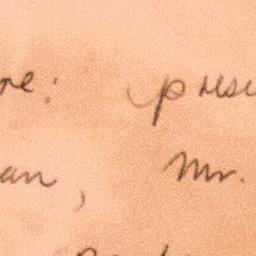 re: presu
an, Mr.